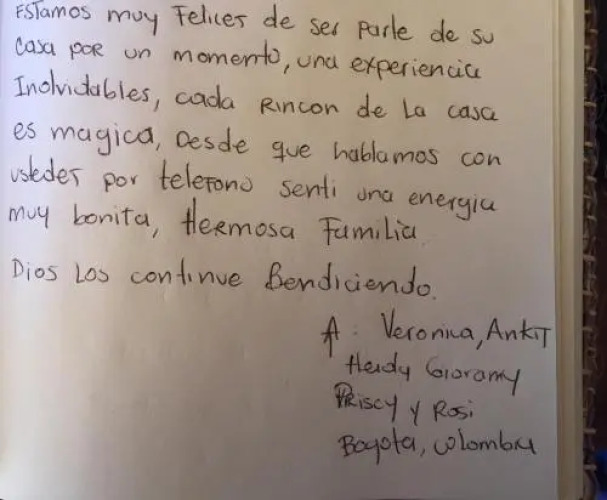 Estamos muy Felices de ser parte de su
casa por un momento, una experiencia
Inolvidables, cada Rincon de La casa
es magica, Desde que hablamos con
ustedes por telefono senti una energia
muy bonita, Hermosa Familia.
Dios Los continue Bendiciendo.
A: Veronica, Ankit
Heidy
Priscy y Rosi
Bogota, colombia